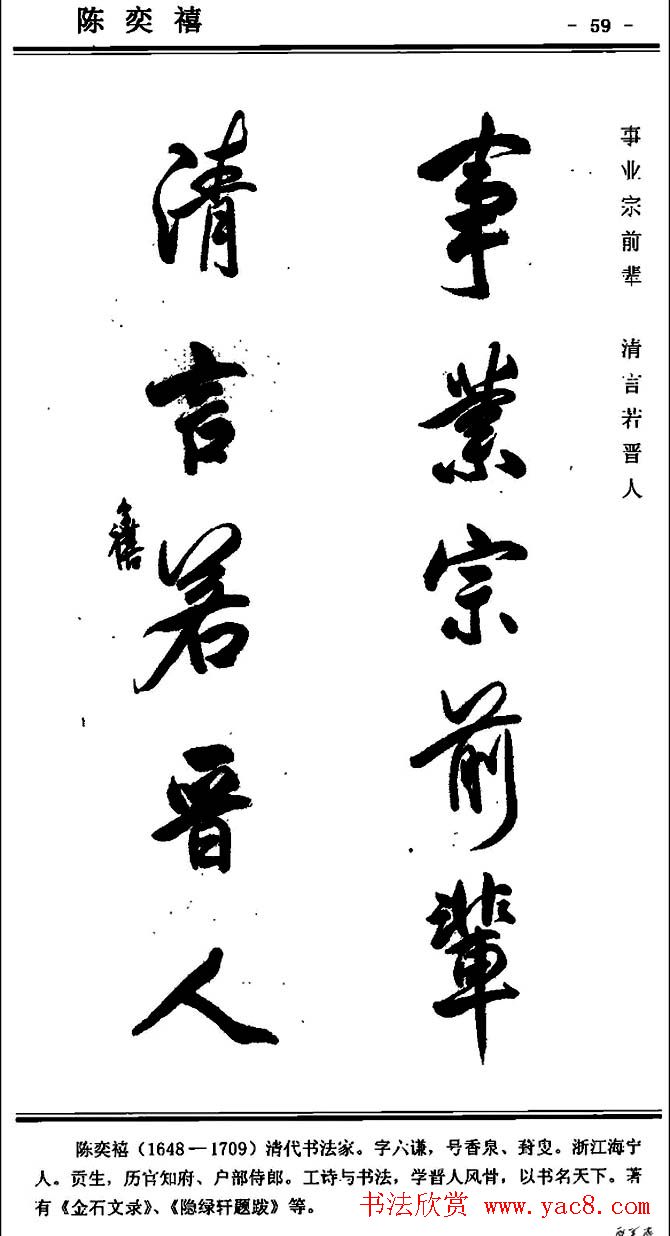 陈奕禧
- 59 -
事业宗前辈 清言若晋人
事業宗前輩
清言若晋人
奕禧
陈奕禧（1648—1709）清代书法家。字六谦，号香泉、葑叟。浙江海宁
人。贡生，历官知府、户部侍郎。工诗与书法，学晋人风骨，以书名天下。著
有《金石文录》、《隐绿轩题跋》等。
书法欣赏 www.yac8.com